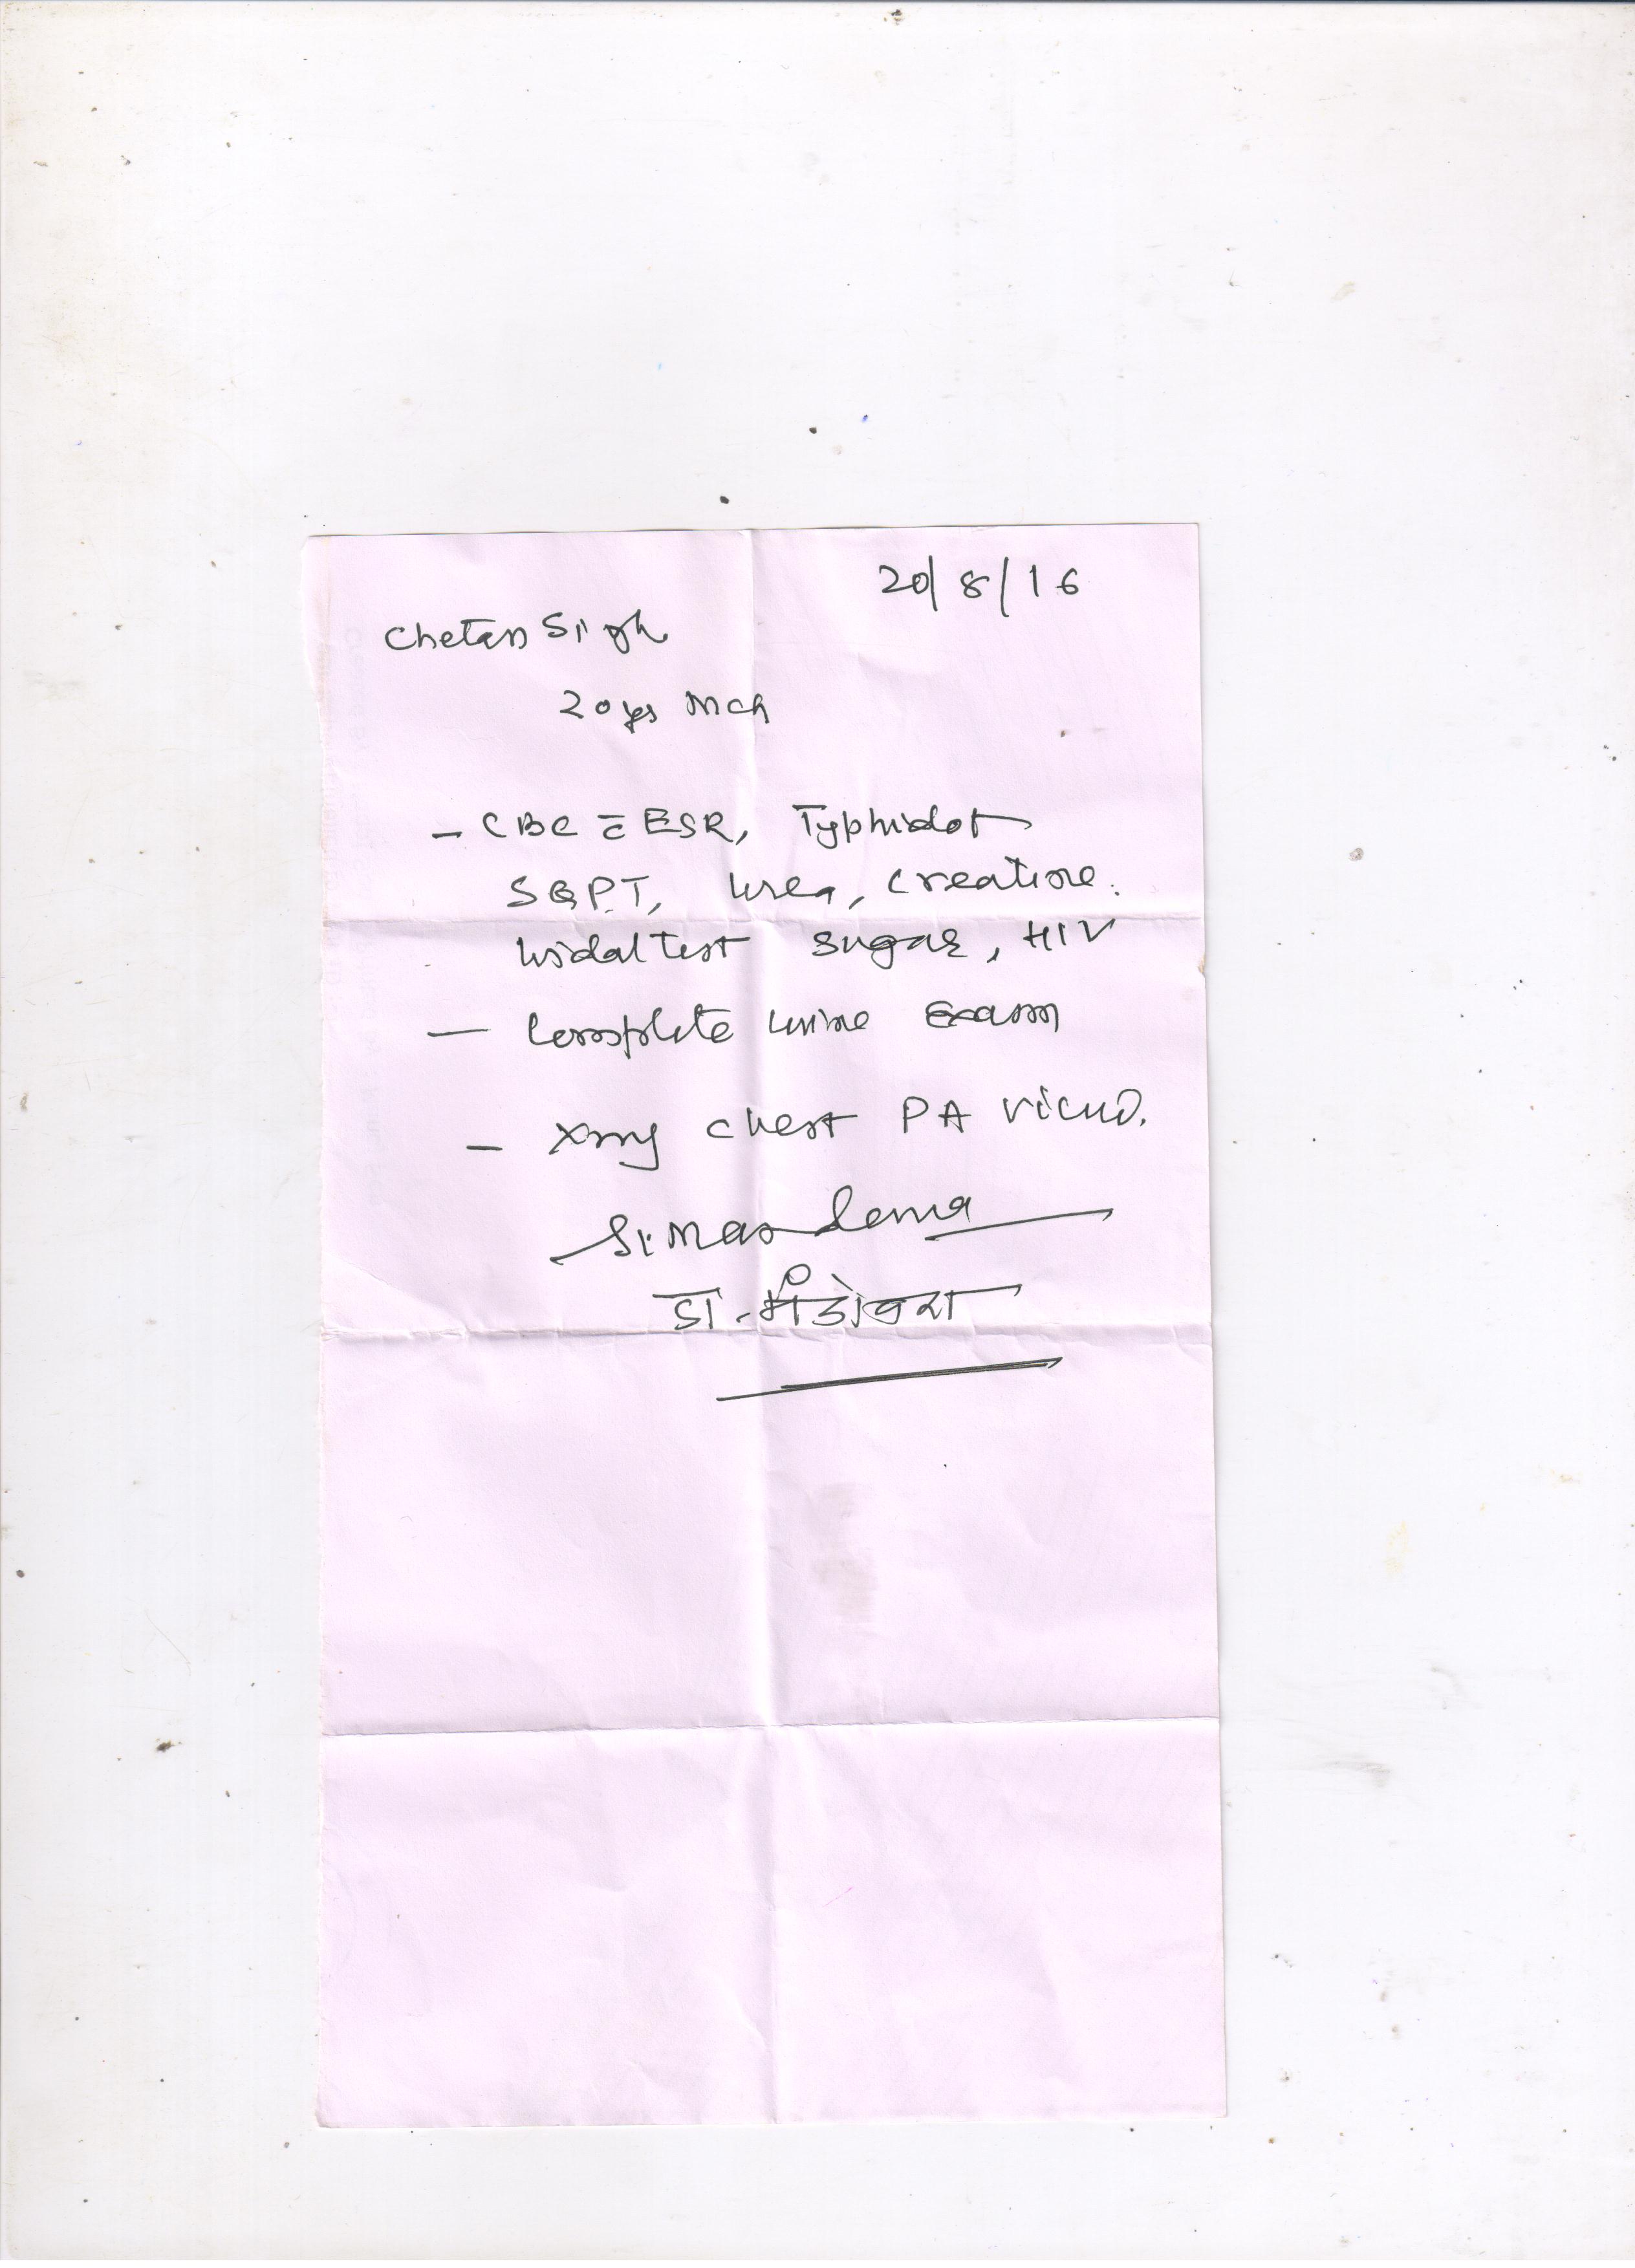 20/8/16
Chetan Singh
20 yrs Mch
- CBC c̄ ESR, Typhidot
SGPT, Urea, Creatine.
Widal test sugar, HIV
- Complete Urine Exam
- Xray Chest PA View.
डा.